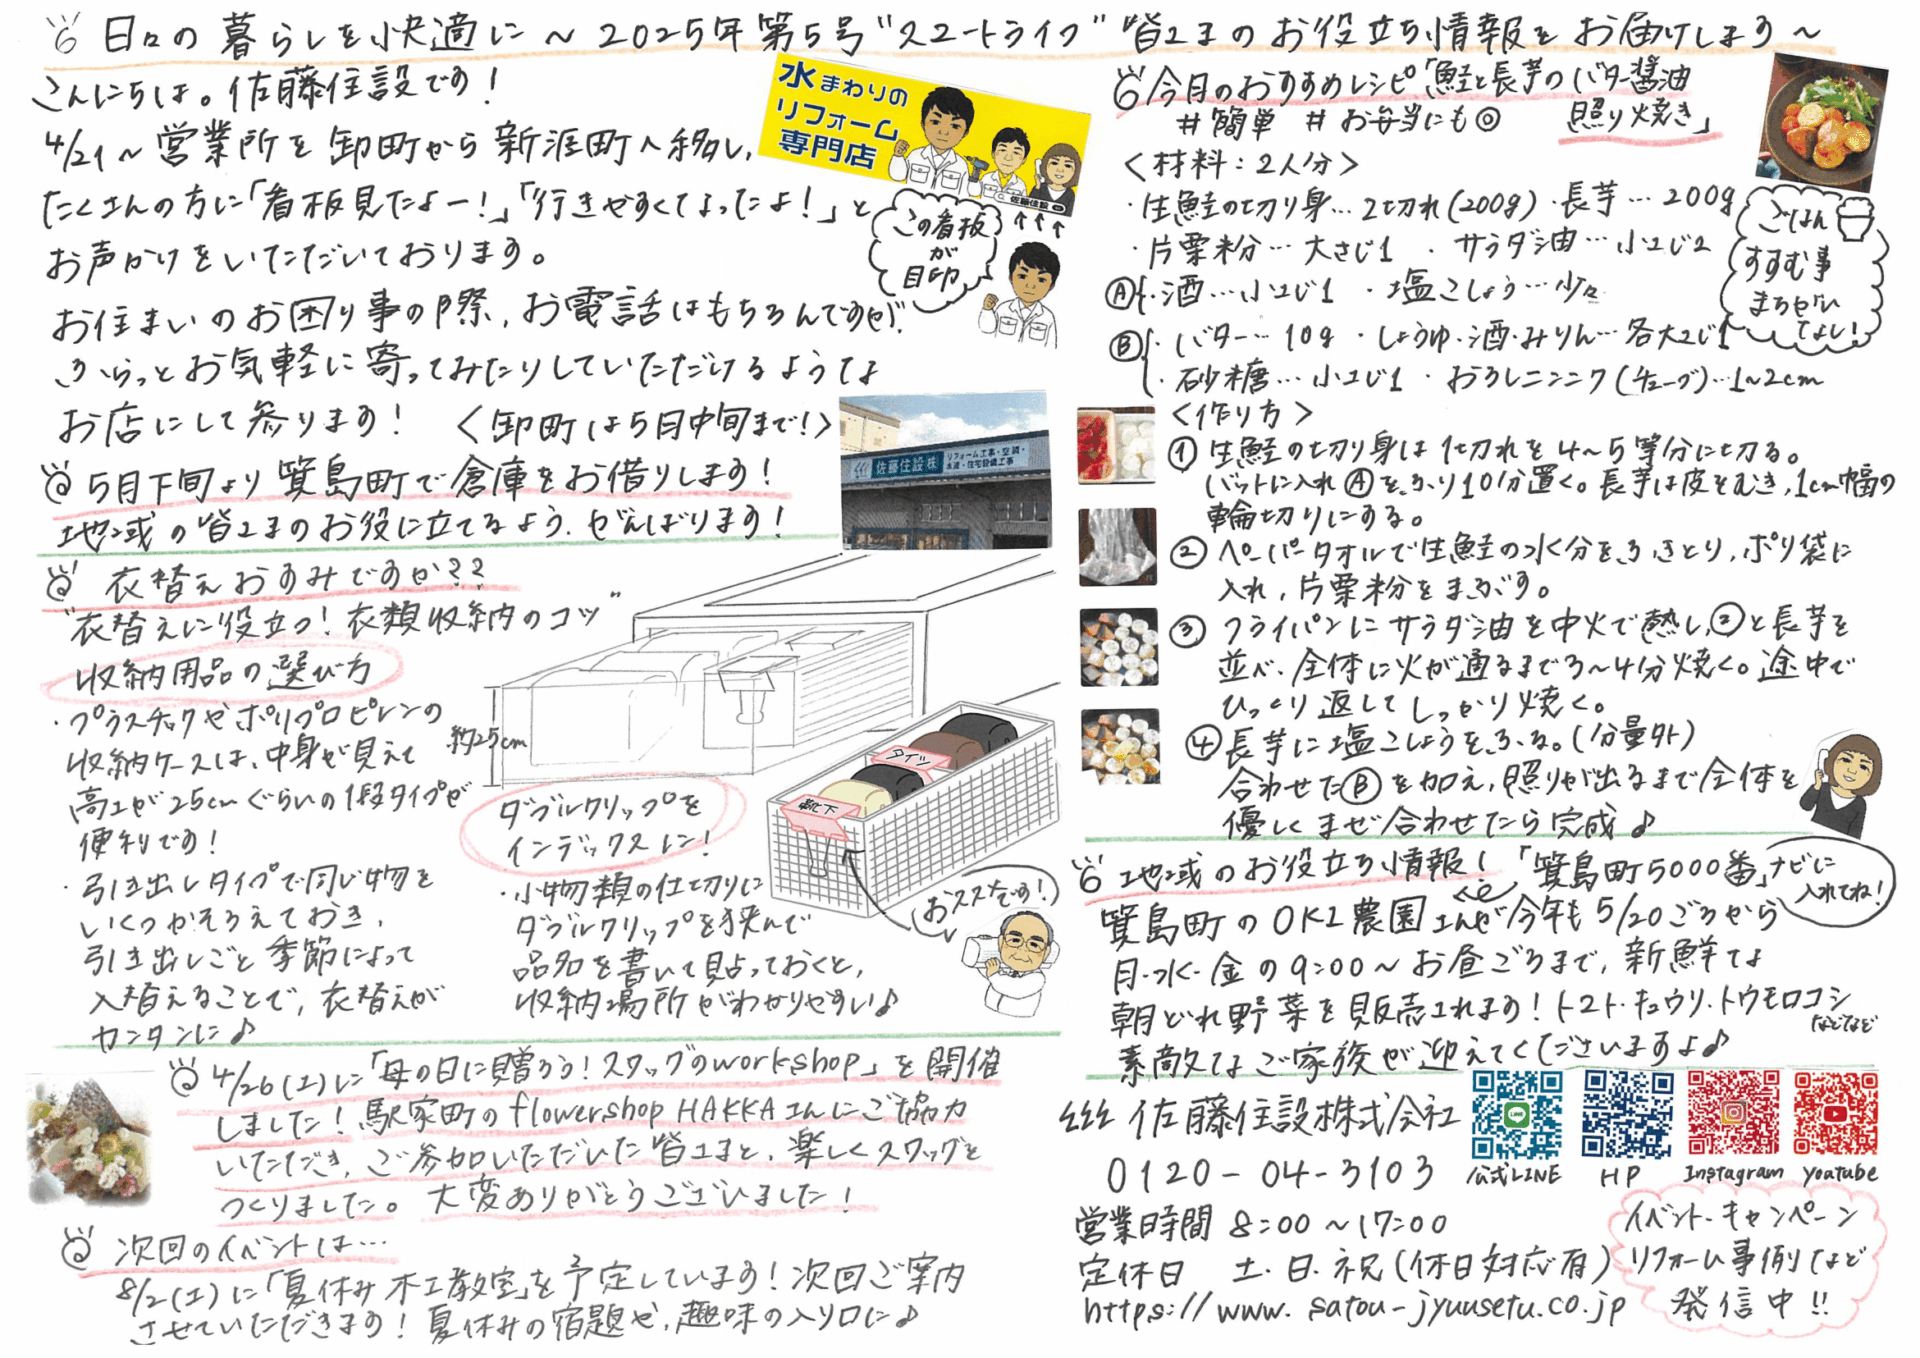 日々の暮らしを快適に ～ 2025年 第5号 "スマートライフ" 皆さまのお役立ち情報をお届けします～
こんにちは。佐藤住設です！
4/21～営業所を卸町から新涯町へ移し、
たくさんの方に「看板見たよー！」「行きやすくなったよ！」と
お声かけをいただいております。
お住まいのお困り事の際、お電話はもちろんですが、
ふらっとお気軽に寄ってみたりしていただけるような
お店にして参ります！ ＜卸町は5月中旬まで！＞
水まわりの
リフォーム
専門店
佐藤住設
この看板
が
目印
5月下旬より箕島町で倉庫をお借りします！
地域の皆さまのお役に立てるよう、がんばります！
佐藤住設㈱
リフォーム工事・空調・
水道・住宅設備工事
衣替えおすみですか？？
"衣替えに役立つ！衣類収納のコツ"
収納用品の選び方
・プラスチックやポリプロピレンの
収納ケースは、中身が見えて
高さが25cmぐらいの1段タイプが
便利です！
・引き出しタイプで同じ物を
いくつかそろえておき、
引き出しごと季節によって
入替えることで、衣替えが
カンタンに♪
約25cm
ダブルクリップを
インデックスに！
・小物類の仕切りに
ダブルクリップを挟んで
品名を書いて貼っておくと、
収納場所がわかりやすい♪
タイツ
靴下
おススメです！
4/26(土)に「母の日に贈ろう！スワッグのworkshop」を開催
しました！駅家町のflowershop HAKKAさんにご協力
いただき、ご参加いただいた皆さまと、楽しくスワッグを
つくりました。大変ありがとうございました！
次回のイベントは…
8/2(土)に「夏休み木工教室」を予定しています！次回ご案内
させていただきます！夏休みの宿題や、趣味の入り口に♪
今月のおすすめレシピ「鮭と長芋のバター醤油
照り焼き」
＃簡単 ＃お弁当にも◎
＜材料：2人分＞
・生鮭の切り身…2切れ(200g) ・長芋…200g
・片栗粉…大さじ1 ・サラダ油…小さじ2
Ⓐ ・酒…小さじ1 ・塩こしょう…少々
Ⓑ ・バター…10g ・しょうゆ・酒・みりん…各大さじ1
・砂糖…小さじ1 ・おろしニンニク(チューブ)…1～2cm
ごはん
すすむ事
まちがい
なし！
＜作り方＞
① 生鮭の切り身は1切れを4～5等分に切る。
バットに入れⒶをふり10分置く。長芋は皮をむき、1cm幅の
輪切りにする。
② ペーパータオルで生鮭の水分をふきとり、ポリ袋に
入れ、片栗粉をまぶす。
③ フライパンにサラダ油を中火で熱し、②と長芋を
並べ、全体に火が通るまで3～4分焼く。途中で
ひっくり返してしっかり焼く。
④ 長芋に塩こしょうをふる。(分量外)
合わせたⒷを加え、照りが出るまで全体を
優しくまぜ合わせたら完成♪
地域のお役立ち情報！「箕島町5000番」ナビに
入れてね！
箕島町のOKI農園さんが今年も5/20ごろから
月・水・金の9:00～お昼ごろまで、新鮮な
朝どれ野菜を販売されます！トマト・キュウリ・トウモロコシ
などなど
素敵なご家族が迎えてくださいますよ♪
佐藤住設株式会社
0120-04-3103
営業時間 8:00～17:00
定休日 土・日・祝(休日対応有)
https://www.satou-jyuusetu.co.jp
公式LINE HP Instagram youtube
イベント・キャンペーン
リフォーム事例など
発信中!!